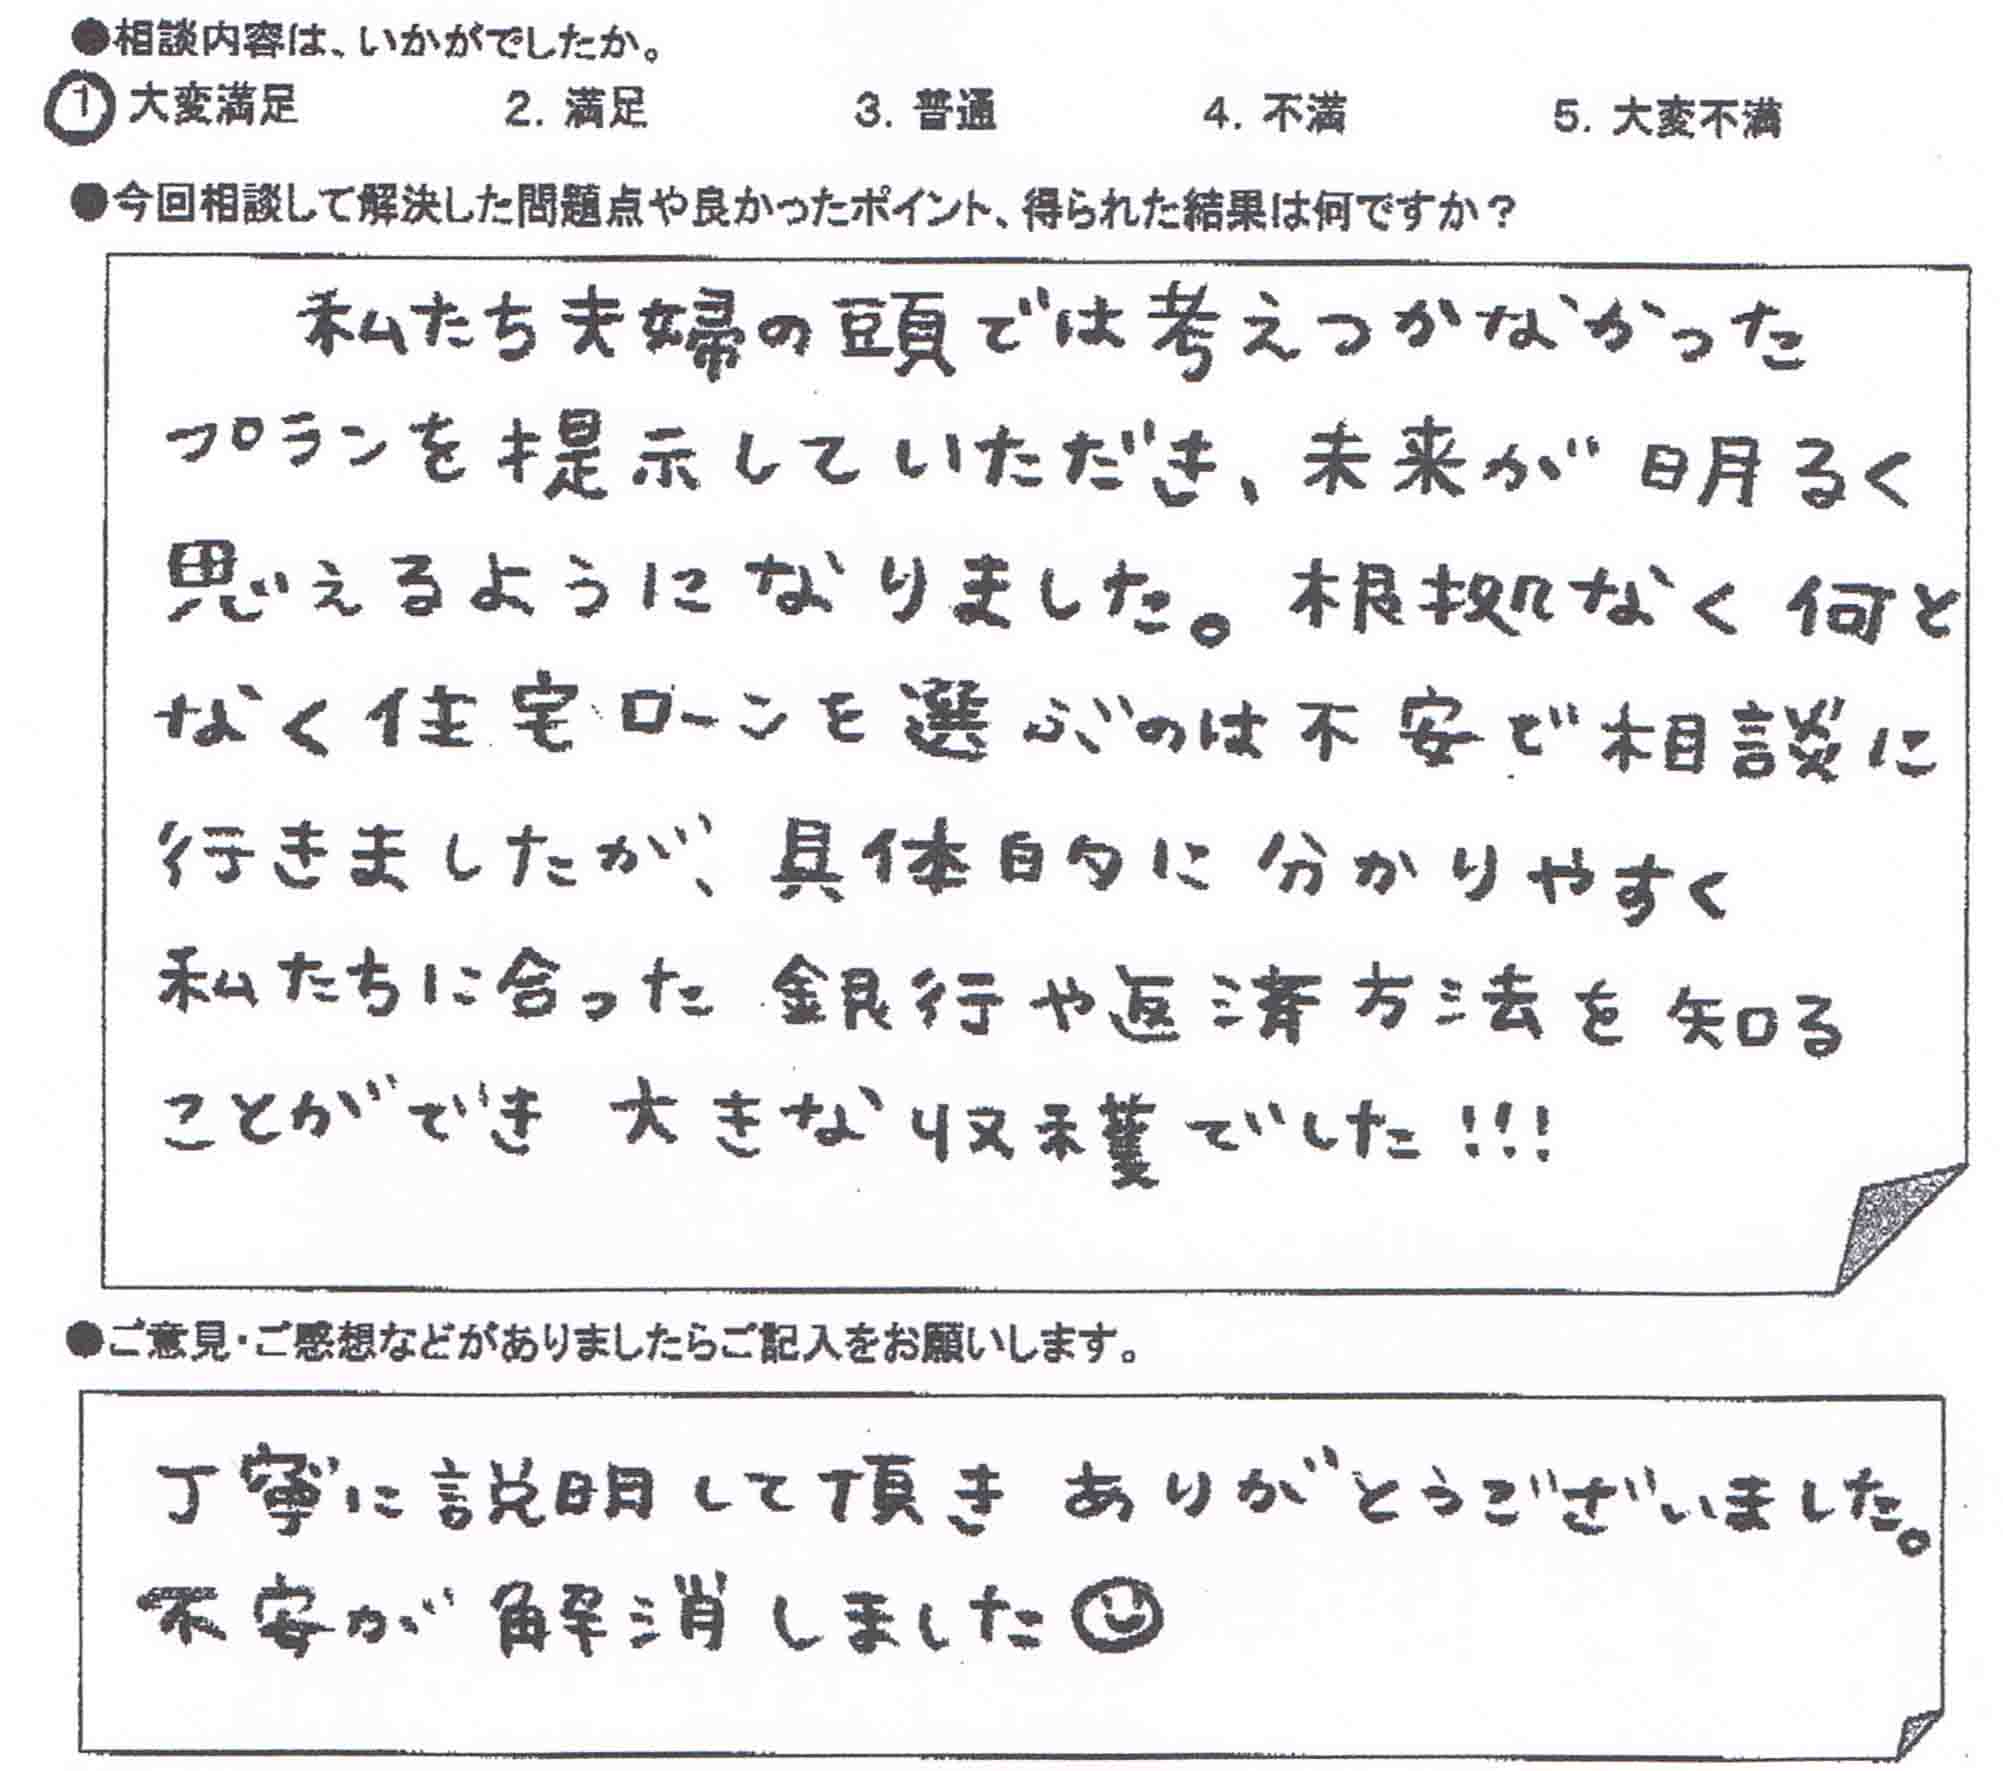 ●相談内容は、いかがでしたか。
1 大変満足 2. 満足 3. 普通 4. 不満 5. 大変不満
●今回相談して解決した問題点や良かったポイント、得られた結果は何ですか？
私たち夫婦の頭では考えつかなかった
プランを提示していただき、未来が明るく
思えるようになりました。根拠なく何と
なく住宅ローンを選ぶのは不安で相談に
行きましたが、具体的に分かりやすく
私たちに合った銀行や返済方法を知る
ことができ 大きな収穫でした!!!
●ご意見・ご感想などがありましたらご記入をお願いします。
丁寧に説明して頂き ありがとうございました。
不安が解消しました☺